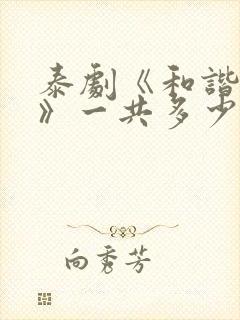 泰劇《和諧
》一共多少
向秀芳